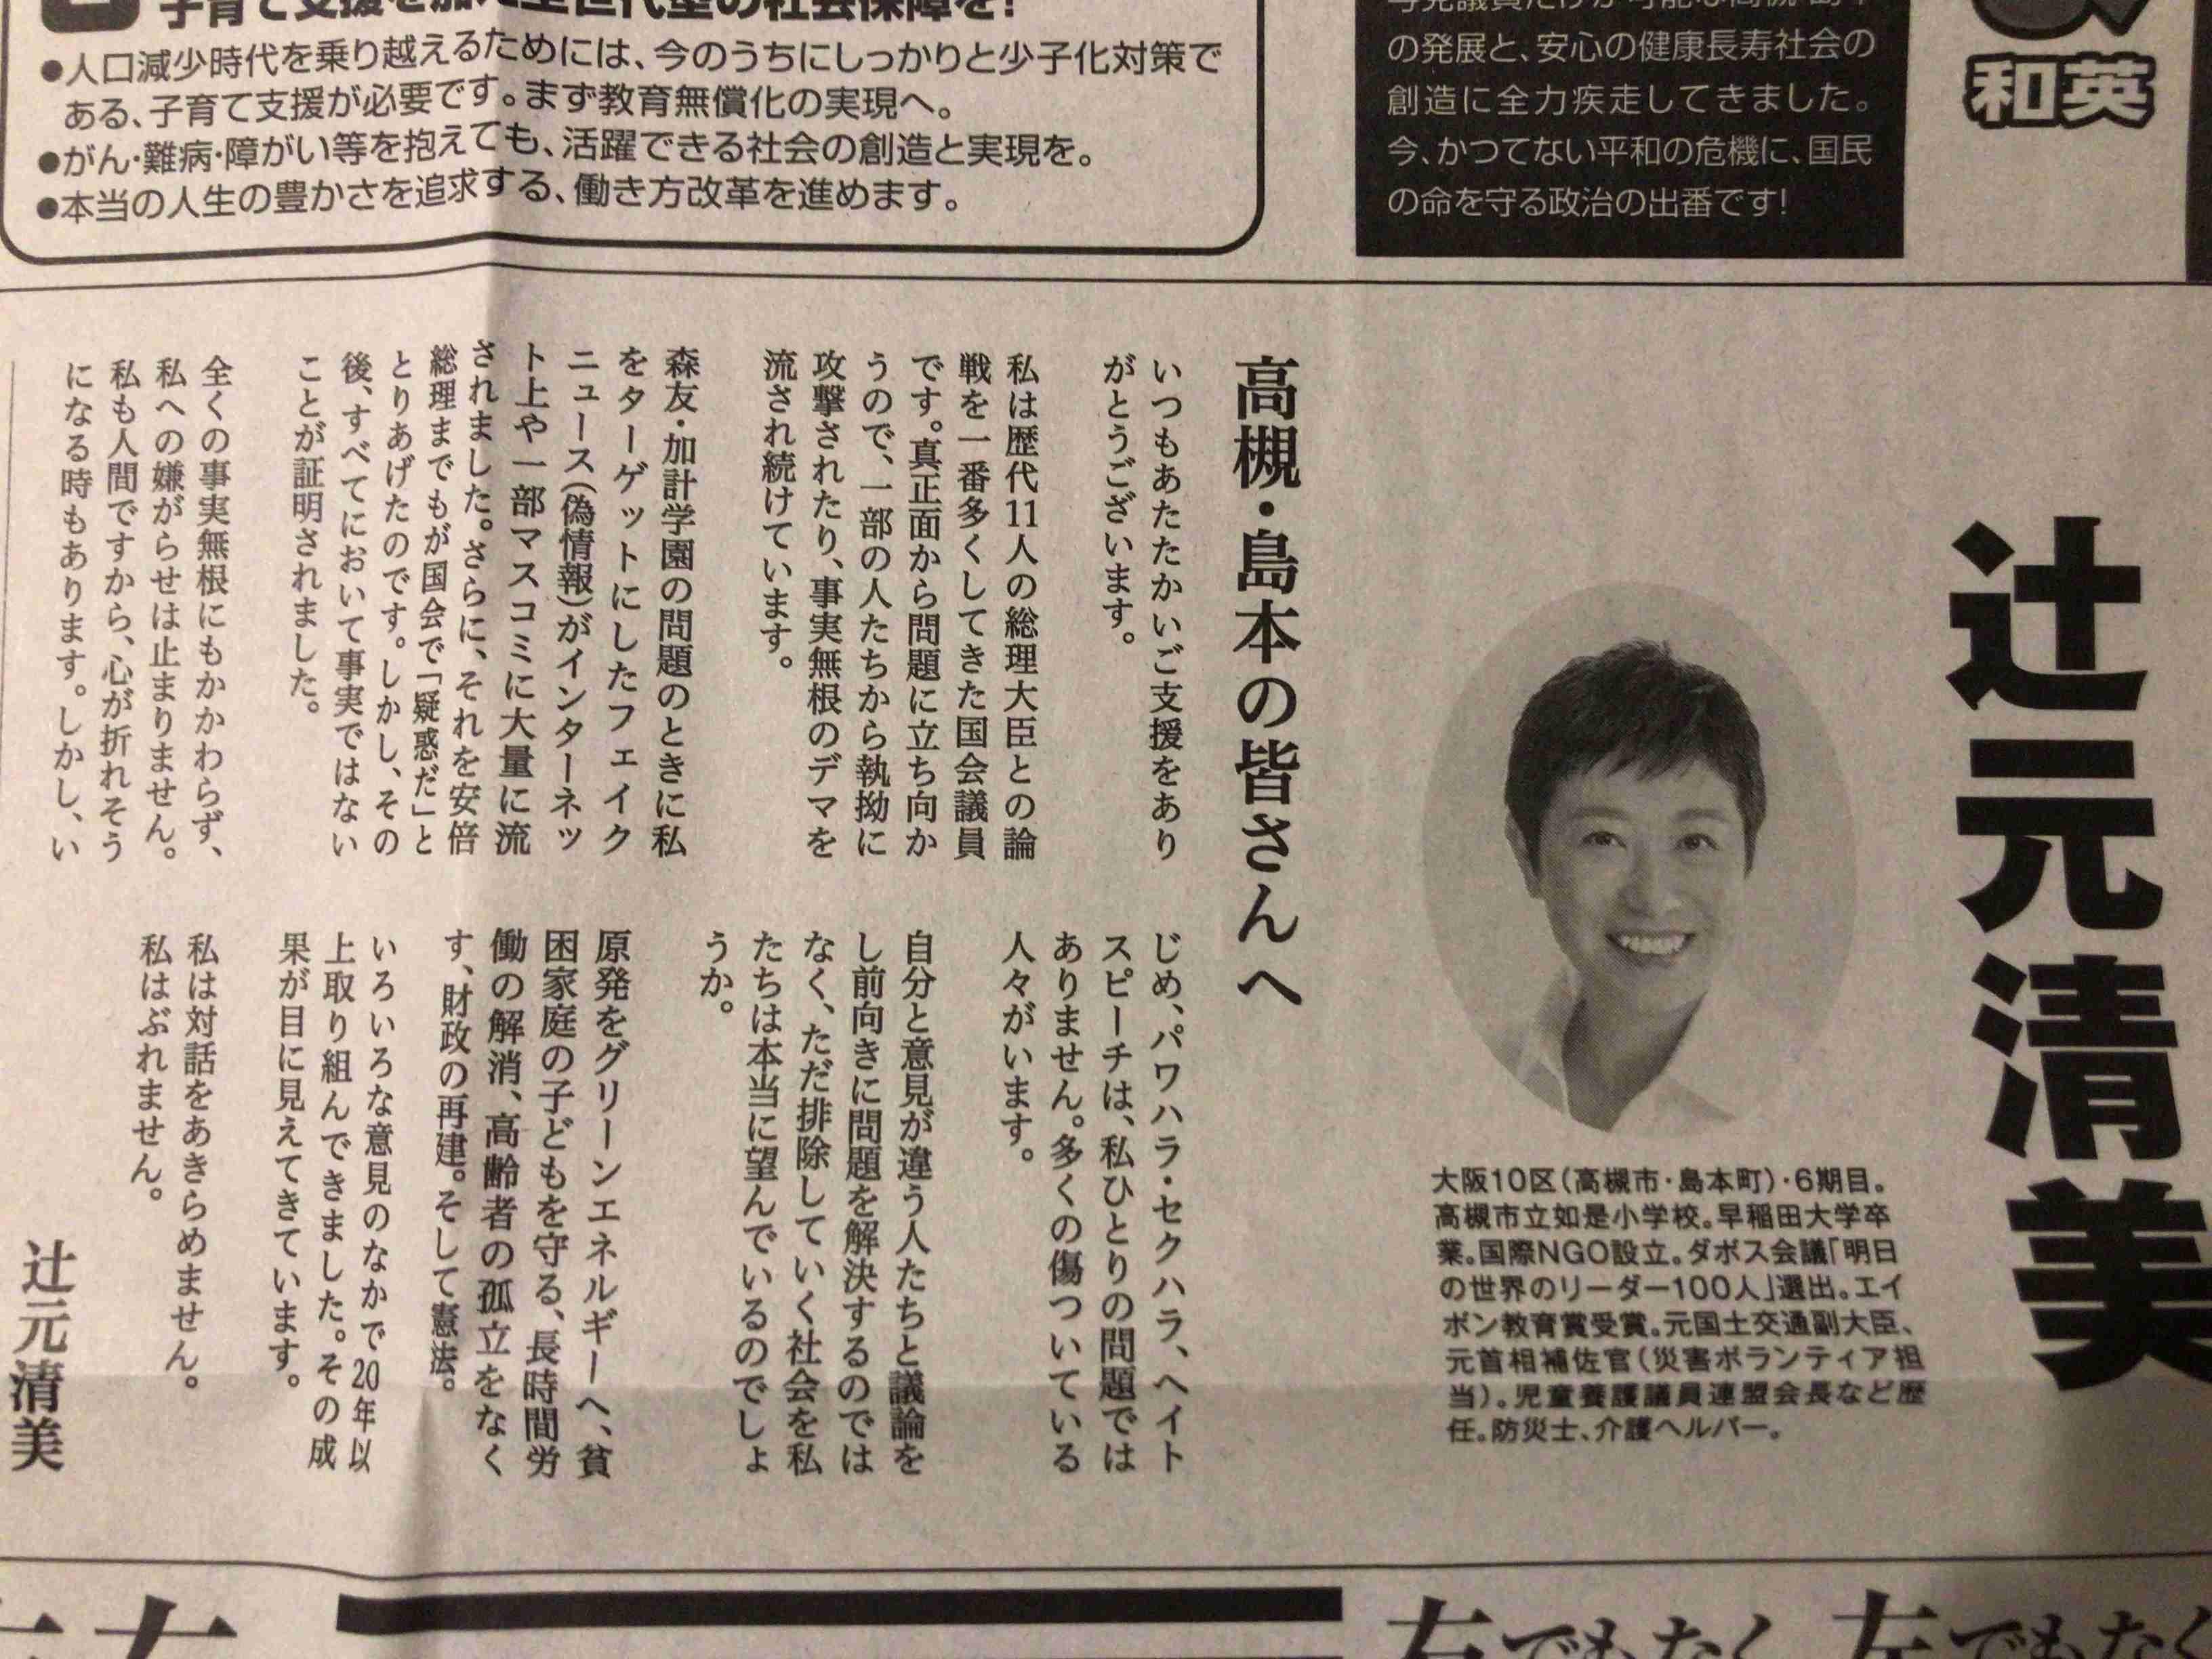 子育て支援を加え全世代型の社会保障を!
●人口減少時代を乗り越えるためには、今のうちにしっかりと少子化対策で
ある、子育て支援が必要です。まず教育無償化の実現へ。
●がん・難病・障がい等を抱えても、活躍できる社会の創造と実現を。
●本当の人生の豊かさを追求する、働き方改革を進めます。
の発展と、安心の健康長寿社会の
創造に全力疾走してきました。
今、かつてない平和の危機に、国民
の命を守る政治の出番です!
和英
辻元清美
大阪10区(高槻市・島本町)・6期目。
高槻市立如是小学校。早稲田大学卒
業。国際NGO設立。ダボス会議「明日
の世界のリーダー100人」選出。エイ
ボン教育賞受賞。元国土交通副大臣、
元首相補佐官(災害ボランティア担
当)。児童養護議員連盟会長など歴
任。防災士、介護ヘルパー。
高槻・島本の皆さんへ
いつもあたたかいご支援をあり
がとうございます。
私は歴代11人の総理大臣との論
戦を一番多くしてきた国会議員
です。真正面から問題に立ち向か
うので、一部の人たちから執拗に
攻撃されたり、事実無根のデマを
流され続けています。
森友・加計学園の問題のときに私
をターゲットにしたフェイク
ニュース(偽情報)がインターネッ
ト上や一部マスコミに大量に流
されました。さらに、それを安倍
総理までもが国会で「疑惑だ」と
とりあげたのです。しかし、その
後、すべてにおいて事実ではない
ことが証明されました。
全くの事実無根にもかかわらず、
私への嫌がらせは止まりません。
私も人間ですから、心が折れそう
になる時もあります。しかし、い
じめ、パワハラ・セクハラ、ヘイト
スピーチは、私ひとりの問題では
ありません。多くの傷ついている
人々がいます。
自分と意見が違う人たちと議論を
し前向きに問題を解決するのでは
なく、ただ排除していく社会を私
たちは本当に望んでいるのでしょ
うか。
原発をグリーンエネルギーへ、貧
困家庭の子どもを守る、長時間労
働の解消、高齢者の孤立をなく
す、財政の再建。そして憲法。
いろいろな意見のなかで20年以
上取り組んできました。その成
果が目に見えてきています。
私は対話をあきらめません。
私はぶれません。
辻元清美
右でもなく 左でもなく